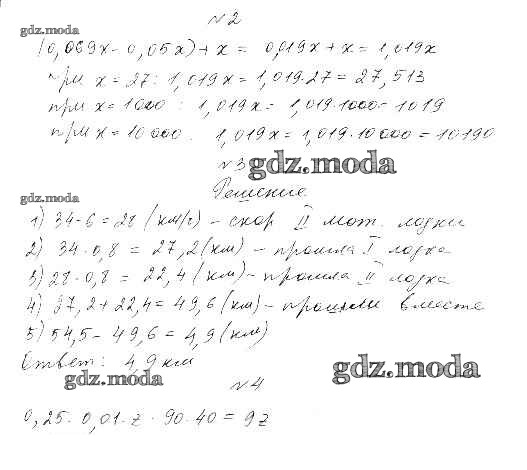 №2
gdz.moda
(0,069x - 0,05x) + x = 0,019x + x = 1,019x
при x = 27: 1,019x = 1,019·27 = 27,513
при x = 1000: 1,019x = 1,019·1000 = 1019
при x = 10 000. 1,019x = 1,019·10 000 = 10190
№3 gdz.moda
gdz.moda Решение
1) 34-6 = 28 (км/ч) – скор II мот. лодки
2) 34·0,8 = 27,2 (км) – прошла I лодка
3) 28·0,8 = 22,4 (км) – прошла II лодка
4) 27,2 + 22,4 = 49,6 (км) – прошли вместе
5) 54,5 - 49,6 = 4,9 (км)
Ответ: 4,9 км
gdz.moda gdz.moda
№4
0,25·0,01·z·90·40 = 9z